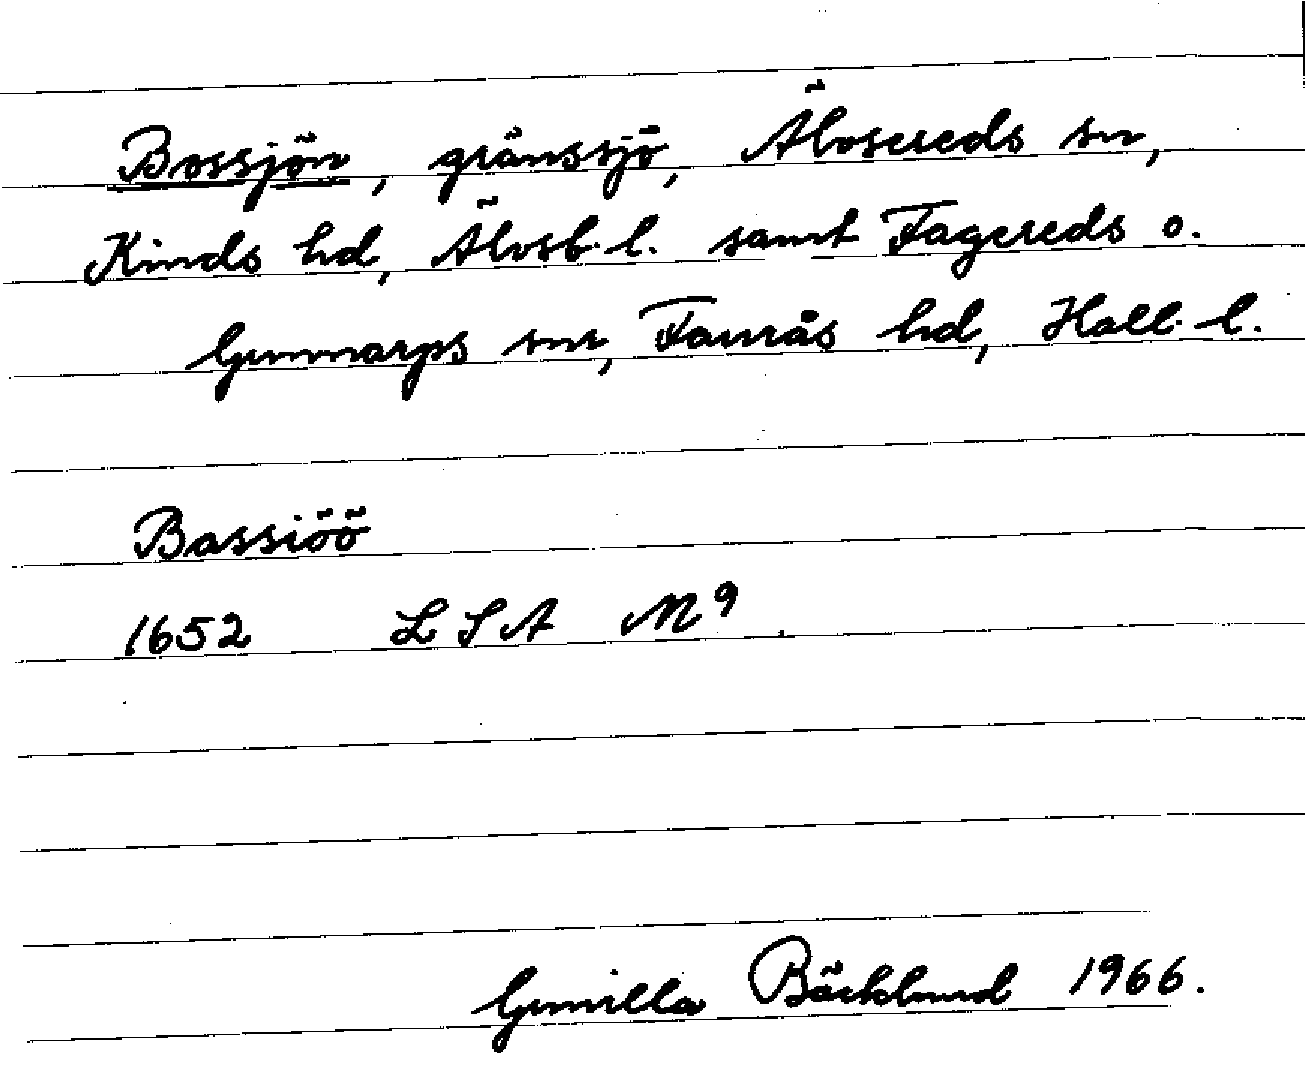 Bossjön, gränssjö, Älvsereds sn,
Kinds hd, Älvsb. l. samt Fagereds o.
Gunnarps snr, Faurås hd, Hall. l.
Bassiöö
1652 LSA M 9
Gunilla Bäcklund 1966.